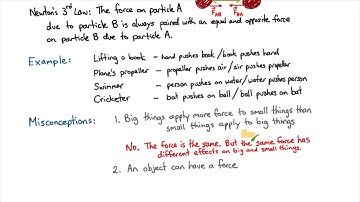 Newton's 3rd Law: The force on particle A
due to particle B is always paired with an equal and opposite force
on particle B due to particle A.
FAB FBA
Example: Lifting a book - hand pushes book / book pushes hand
Plane's propeller - propeller pushes air / air pushes propeller
Swimmer - person pushes on water / water pushes person
Cricketer - bat pushes on ball / ball pushes on bat
Misconceptions: 1. Big things apply more force to small things than
small things apply to big things
No. The force is the same. But the same force has
different effects on big and small things.
2. An object can have a force